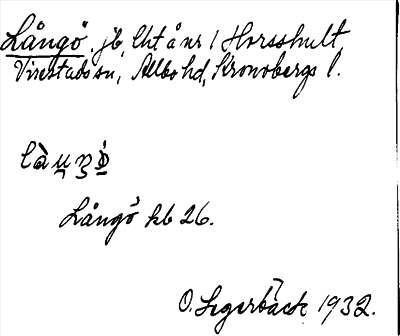 Långö, jb, lht å nr 1 Horsshult,
Virestads sn, Allbo hd, Kronobergs l.
Långö kb 26.
O. Segerbäck 1932.